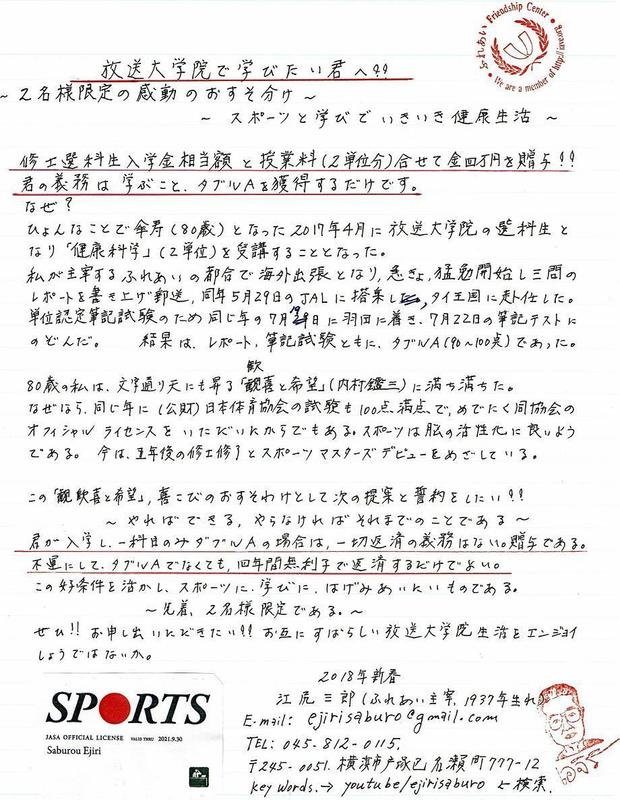 ふれあい Friendship Center
We are a member of http://mixerorg
放送大学院で学びたい君へ!!
～2名様限定の感動のおすそ分け～
～ スポーツと学びでいきいき健康生活 ～
修士選科生入学金相当額と授業料(2単位分)合せて金四万円を贈与!!
君の義務は学ぶこと、ダブルAを獲得するだけです。
なぜ?
ひょんなことで傘寿(80歳)となった2017年4月に放送大学院の選科生と
なり「健康科学」(2単位)を受講することとなった。
私が主宰するふれあいの都合で海外出張となり、急きょ、猛勉開始し三問の
レポートを書き上げ郵送、同年5月29日のJALに搭乗し、タイ王国に赴任した。
単位認定筆記試験のため同じ年の7月19日に羽田に着き、7月22日の筆記テストに
のぞんだ。 結果は、レポート、筆記試験ともに、ダブルA(90～100点)であった。
80歳の私は、文字通り天にも昇る「歓喜と希望」(内村鑑三)に満ち満ちた。
なぜなら、同じ年に(公財)日本体育協会の試験も100点満点で、めでたく同協会の
オフィシャル ライセンスをいただいたからでもある。スポーツは脳の活性化に良いよう
である。 今は、五年後の修士修了とスポーツマスターズデビューをめざしている。
この「歓喜と希望」,喜こびのおすそわけとして次の提案と誓約をしたい!!
～ やればできる,やらなければそれまでのことである ～
君が入学し、一科目のみダブルAの場合は、一切返済の義務はない。贈与である。
不運にして、ダブルAでなくても、四年間無利子で返済するだけでよい。
この好条件を活かし、スポーツに、学びに、はげみあいたいものである。
～先着、2名様限定である。～
ぜひ!! お申し出いただきたい!! お互にすばらしい放送大学院生活をエンジョイ
しようではないか。
2018年新春
江尻三郎(ふれあい主宰,1937年生れ)
E-mail: ejirisaburo@gmail.com
TEL: 045-812-0115.
〒245-0051.横浜市戸塚区名瀬町777-12
key words.→ youtube/ejirisaburo ←検索.
SPORTS
JASA OFFICIAL LICENSE VALID THRU 2021.9.30
Saburou Ejiri
エジリ